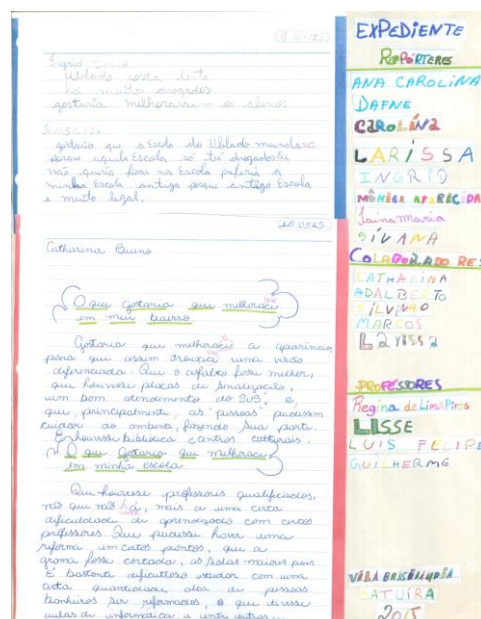 Ubaldo costa leite
há muito drogados
gostaria melhorassem os alunos
gostaria que a Escola do Ubaldo mundasse
porque aquela Escola so tei drogadosEu
não queria ficar na Escola preferia a
minha Escola antiga porque antiga Escola
e muito legal.
Catharina Bueno
O que Gostaria que melhorace
em meu bairro
Gostaria que melhorace a aparência,
para que assim trouxice uma visão
diferenciada. Que o asfalto fosse melhor,
que houvesse placas de sinalização,
um bom atendimento do SUS, e,
que, principalmente, as "pessoas" pudessem
cuidar do ambiente, fazendo sua parte.
E houvesse biblioteca e centros culturais.
O que Gostaria que melhorace
em minha escola
Que houvesse professores qualificados,
não que não há, mais a uma certa
deficuldade de aprendizado com certos
professores. Que pudesse haver uma
reforma em certos pontos, que a
grama fosse cortada, as salas maiores pois
É bastante dificultoso estudar com uma
certa quantidade alta de pessoas.
banheiros ser reformados, e que tivesse
aulas de informática e entre outros...
EXPEDIENTE
REPÓRTERES
ANA CAROLINA
DAFNE
CAROLINA
LARISSA
INGRID
MÔNICA APARECIDA
Taina Maria
SILVANA
COLABORADORES
CATHARINA
ADALBERTO
SILVINHO
MARCOS
LARISSA
PROFESSORES
Regina de Lima Pires
LISSE
LUIS FELIPE
GUILHERME
VILA BRASILÂNDIA
CATUÍRA
2015